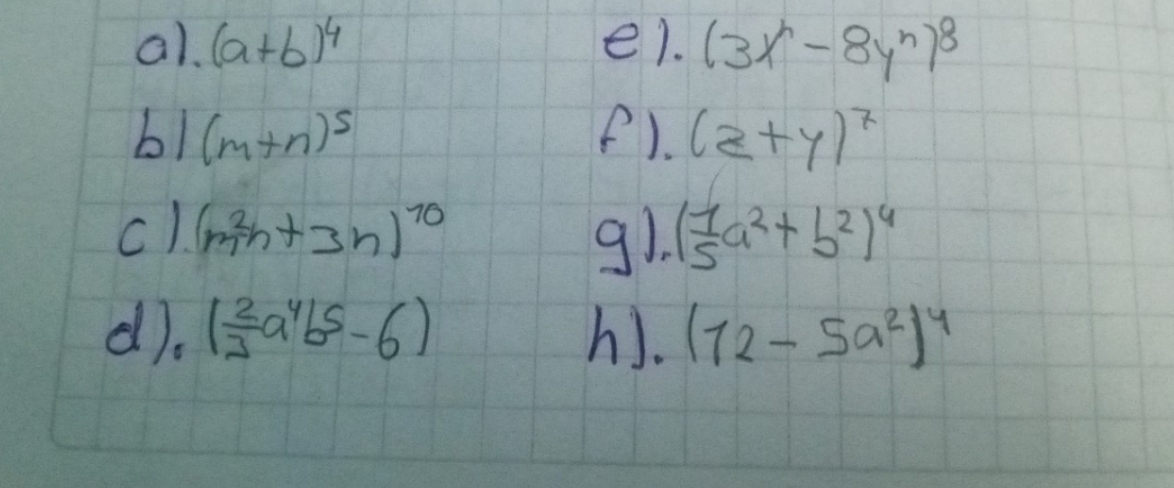 a). (a+b)⁴
b) (m+n)⁵
c). (m²n+3n)¹⁰
d). (2/3a⁴b⁵-6)
e). (3xⁿ-8yⁿ)⁸
f). (z+y)⁷
g). (1/5a²+b²)⁴
h). (12-5a²)⁴